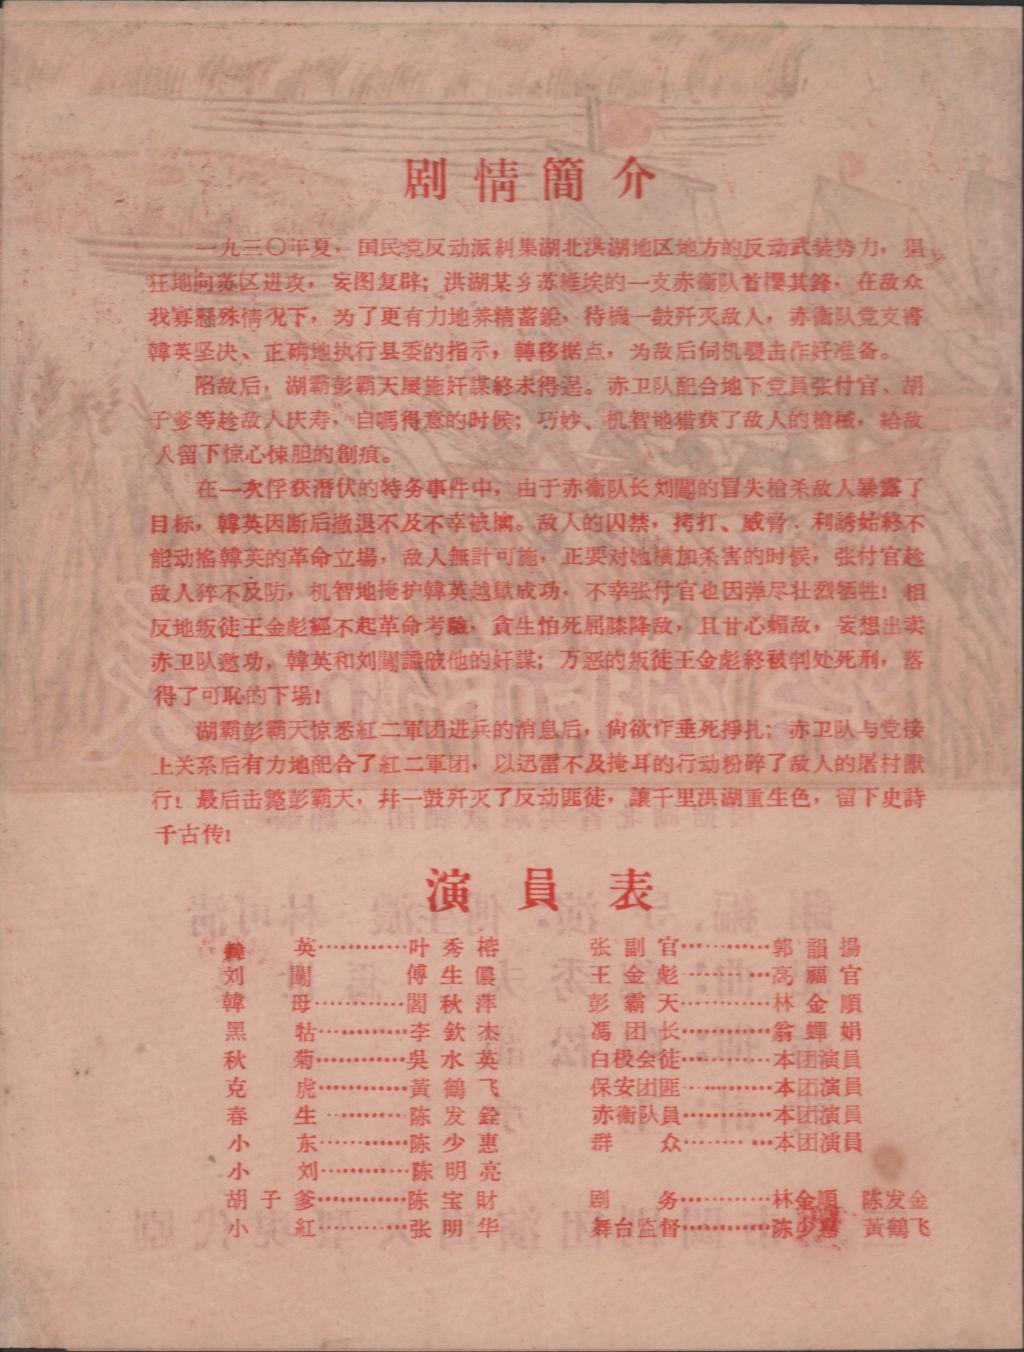 剧情簡介
一九三〇年夏，国民党反动派糾集湖北洪湖地区地方的反动武装势力，猖
狂地向苏区进攻，妄图复辟；洪湖某乡苏維埃的一支赤衞队首櫻其鋒，在敌众
我寡懸殊情况下，为了更有力地养精蓄銳，待機一鼓歼灭敌人，赤衞队党支書
韓英坚决、正确地执行县委的指示，轉移据点，为敌后伺机襲击作好准备。
陷敌后，湖霸彭霸天屡施奸謀終未得逞。赤卫队配合地下党員张付官、胡
子爹等趁敌人庆寿，自鳴得意的时候；巧妙、机智地猎获了敌人的槍械，給敌
人留下惊心悚胆的創痕。
在一次俘获潛伏的特务事件中，由于赤衞队长刘闖的冒失槍杀敌人暴露了
目标，韓英因断后撤退不及不幸被擒。敌人的囚禁，拷打、威脅．利誘始終不
能动搖韓英的革命立場，敌人無計可施，正要对她横加杀害的时候，张付官趁
敌人猝不及防，机智地掩护韓英越獄成功，不幸张付官也因弹尽壮烈牺牲！相
反地叛徒王金彪經不起革命考驗，貪生怕死屈膝降敌，且甘心媚敌，妄想出卖
赤卫队邀功，韓英和刘闖識破他的奸謀；万恶的叛徒王金彪終被判处死刑，落
得了可恥的下場！
湖霸彭霸天惊悉紅二軍团进兵的消息后，尙欲作垂死掙扎；赤卫队与党接
上关系后有力地配合了紅二軍团，以迅雷不及掩耳的行动粉碎了敌人的屠村獸
行！最后击斃彭霸天，幷一鼓歼灭了反动匪徒，讓千里洪湖重生色，留下史詩
千古传！
演員表
韓英…………叶秀榕
刘闖 傅生儂
韓母…………閻秋萍
黑牯…………李欽杰
秋菊…………吳水英
克虎…………黃鶴飞
春生…………陈发銓
小东…………陈少惠
小刘…………陈明亮
胡子爹…………陈宝財
小紅…………张明华
张副官…………郭韻揚
王金彪…………高福官
彭霸天…………林金順
馮团长…………翁蟬娟
白极会徒…………本团演員
保安团匪…………本团演員
赤衞队員…………本团演員
群众…………本团演員
剧务…………林金順 陈发金
舞台监督…………陈少惠 黃鶴飞